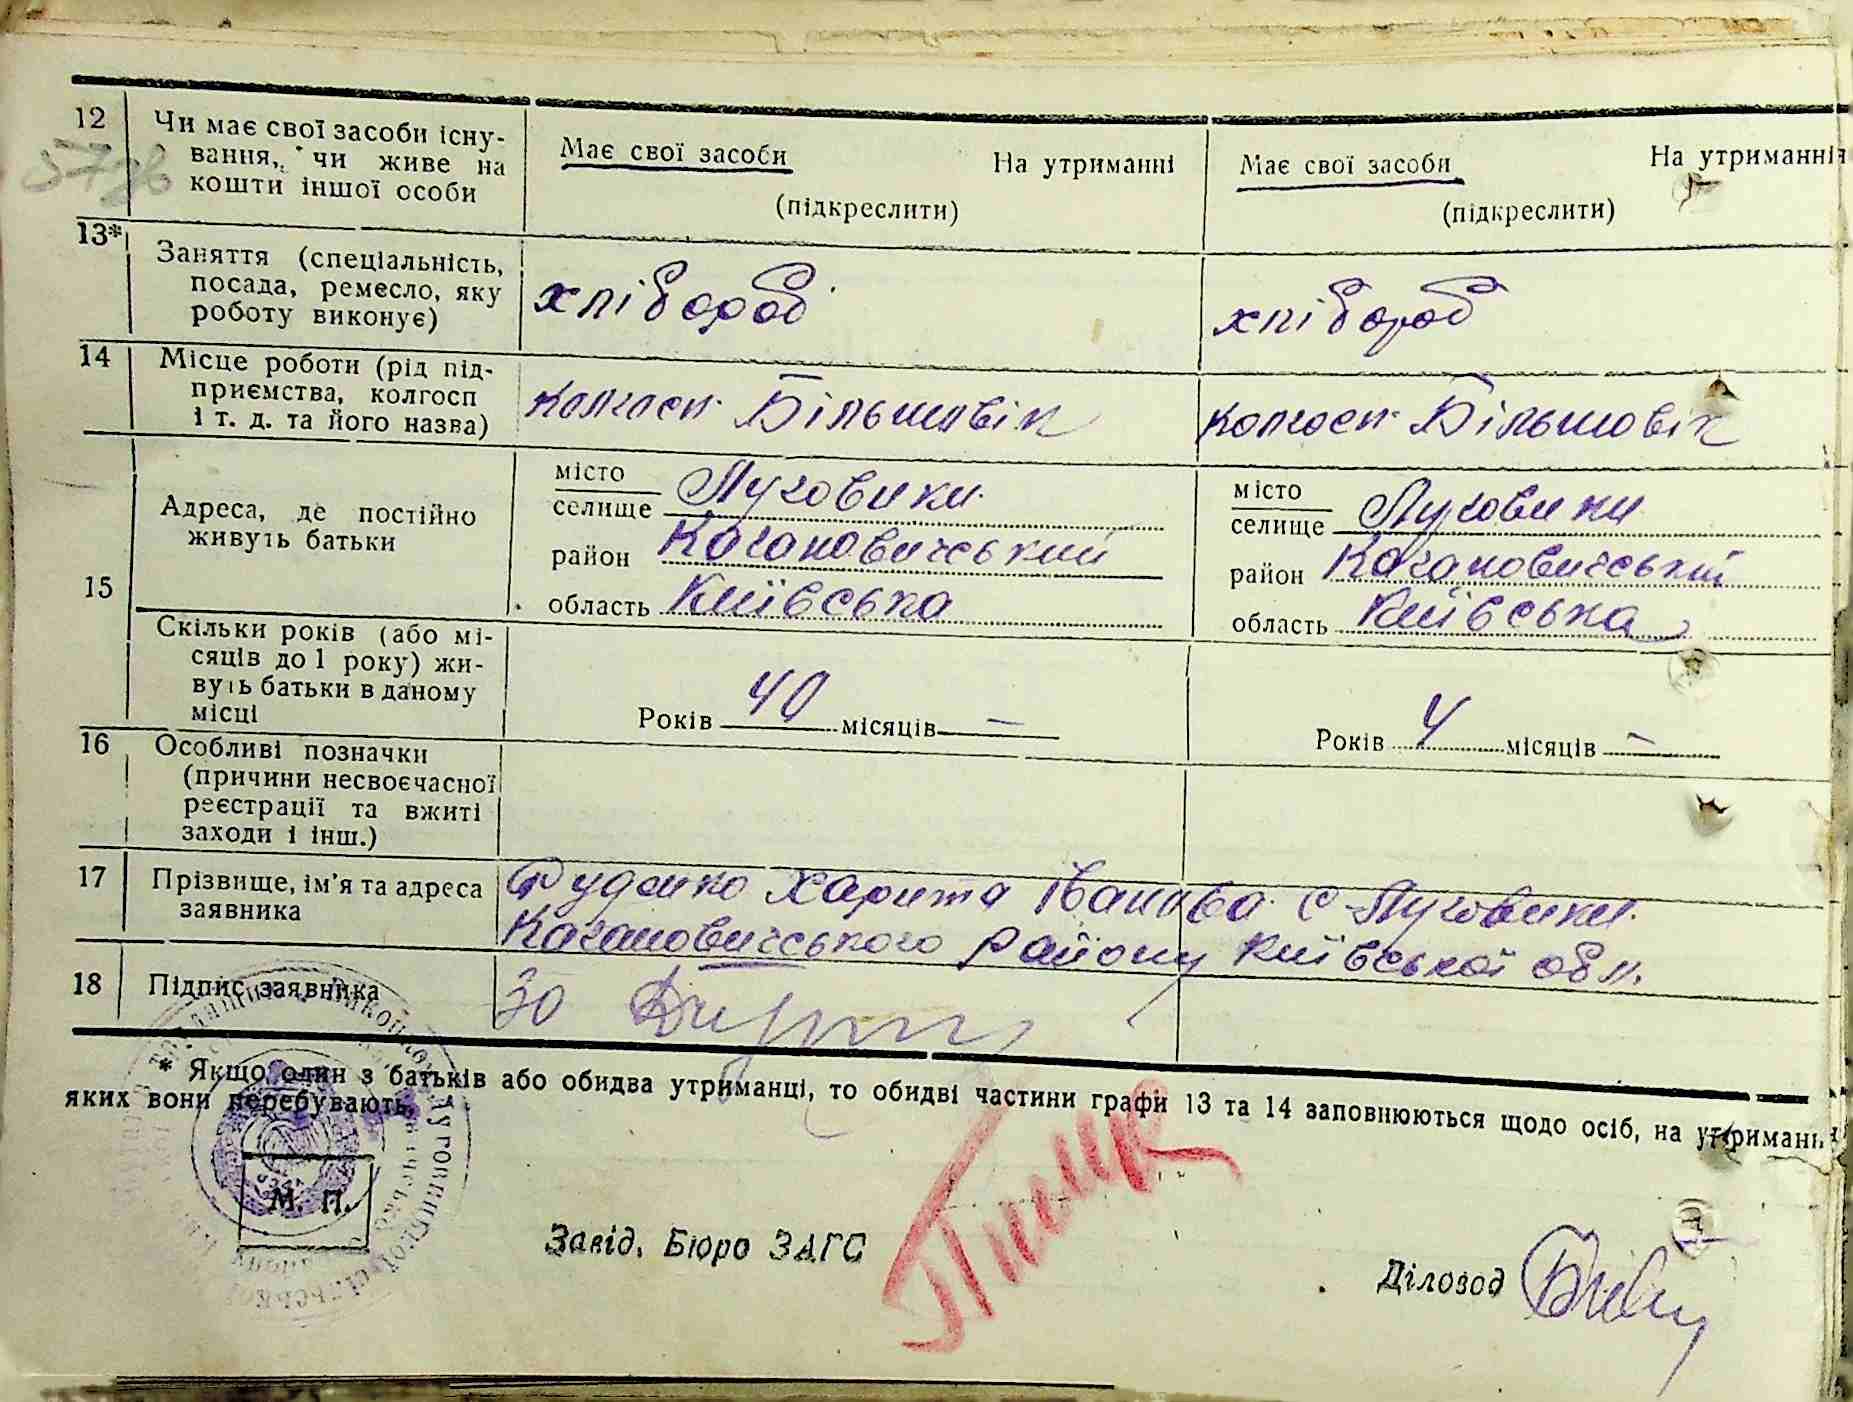 12
Чи має свої засоби існу-
вання, чи живе на
кошти іншої особи
Має свої засоби На утриманні
(підкреслити)
Має свої засоби На утриманні
(підкреслити)
13*
Заняття (спеціальність,
посада, ремесло, яку
роботу виконує)
хлібороб
хлібороб
14
Місце роботи (рід під-
приємства, колгосп
і т. д. та його назва)
колгосп Більшовік
колгосп Більшовік
15
Адреса, де постійно
живуть батьки
місто
селище Луговики
район Кагановичський
область Київська
місто
селище Луговики
район Кагановичський
область Київська
Скільки років (або мі-
сяців до 1 року) жи-
вуть батьки в даному
місці
Років 40 місяців —
Років 4 місяців —
16
Особливі позначки
(причини несвоєчасної
реєстрації та вжиті
заходи і інш.)
17
Прізвище, ім'я та адреса
заявника
Руденко Харита Іванівна с Луговики
Кагановичського району Київської обл.
18
Підпис заявника
За
* Якщо один з батьків або обидва утриманці, то обидві частини графи 13 та 14 заповнюються щодо осіб, на утриманні
яких вони перебувають.
М. П.
Завід. Бюро ЗАГС
Діловод